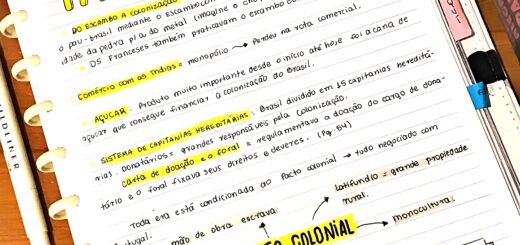 DO ESCAMBO A COLONIZAÇÃO
o pau-brasil mediante o escambo
idade da pedra p/a do metal (imagine o cho
OS Franceses também praticavam o escambo
Comércio com as Índias = monopólio → Perdeu na rota comercial.
AÇÚCAR: Produto muito importante desde o início até hoje foi a cana de
açúcar que consegue financiar a colonização do Brasil.
SISTEMA DE CAPITANIAS HEREDITÁRIAS: Brasil dividido em 15 capitanias hereditá-
rias. Donatários = grandes responsáveis pela colonização.
Carta de doação e o foral = regulamentava a doação do cargo de dona-
tário e o foral fixava seus direitos e deveres. (Pg. 64)
Toda era está condicionada ao Pacto colonial → tudo negociado com
Portugal.
mão de obra escrava
latifúndio = grande propriedade
rural.
COLONIAL
monocultura.
MILDLINER